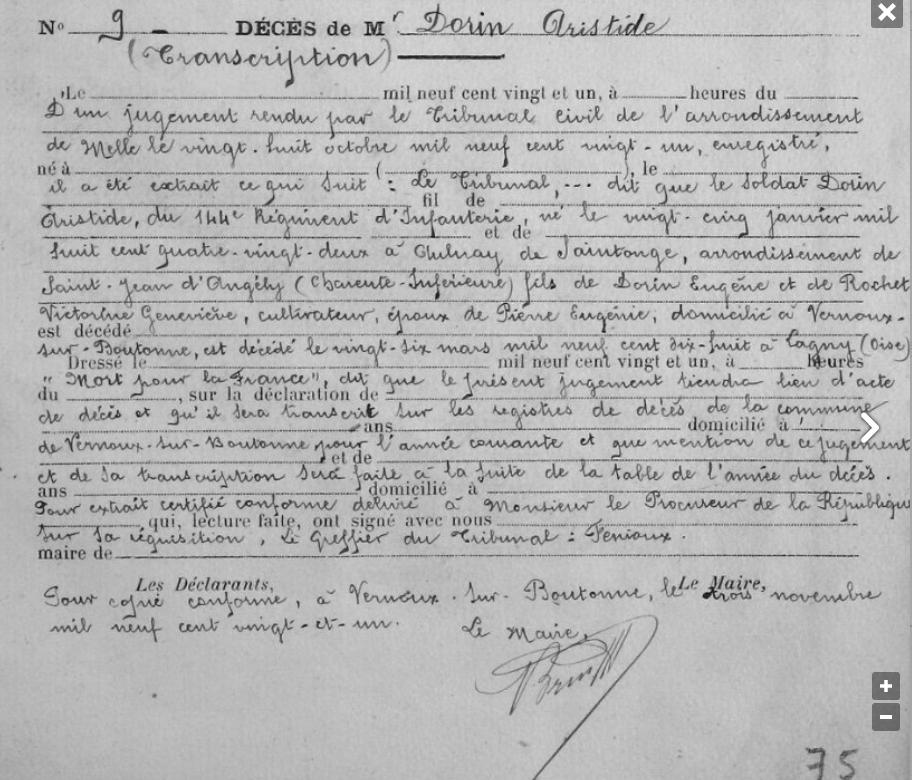 N° 9 - DÉCÈS de Mr Dorin Aristide
(Transcription)
Le mil neuf cent vingt et un, à heures du
D'un jugement rendu par le Tribunal Civil de l'arrondissement
de Melle le vingt-huit octobre mil neuf cent vingt-un, enregistré,
né à (        ), le
il a été extrait ce qui suit : Le Tribunal, --- dit que le soldat Dorin
fil de
Aristide, du 144e Régiment d'Infanterie, né le vingt-cinq janvier mil
et de
huit cent quatre-vingt-deux à Aulnay de Saintonge, arrondissement de
Saint-Jean d'Angély (Charente-Inférieure) fils de Dorin Eugène et de Rochet
Victorine Geneviève, cultivateur, époux de Pierre Eugénie, domicilié à Vernoux-
est décédé
sur-Boutonne, est décédé le vingt-six mars mil neuf cent dix-huit à Lagny (Oise)
Dressé le mil neuf cent vingt et un, à heures
"Mort pour la France", dit que le présent jugement tiendra lieu d'acte
du , sur la déclaration de
de décès et qu'il sera transcrit sur les registres de décès de la commune
ans domicilié à
de Vernoux-sur-Boutonne pour l'année courante et que mention de ce jugement
et de
et de sa transcription sera faite à la suite de la table de l'année du décès.
ans domicilié à
Pour extrait certifié conforme délivré à Monsieur le Procureur de la République
, qui, lecture faite, ont signé avec nous
sur sa réquisition, Le Greffier du Tribunal : Fenioux.
maire de
Les Déclarants, Le Maire,
Pour copie conforme, à Vernoux-sur-Boutonne, le trois novembre
mil neuf cent vingt-et-un. Le Maire,
75